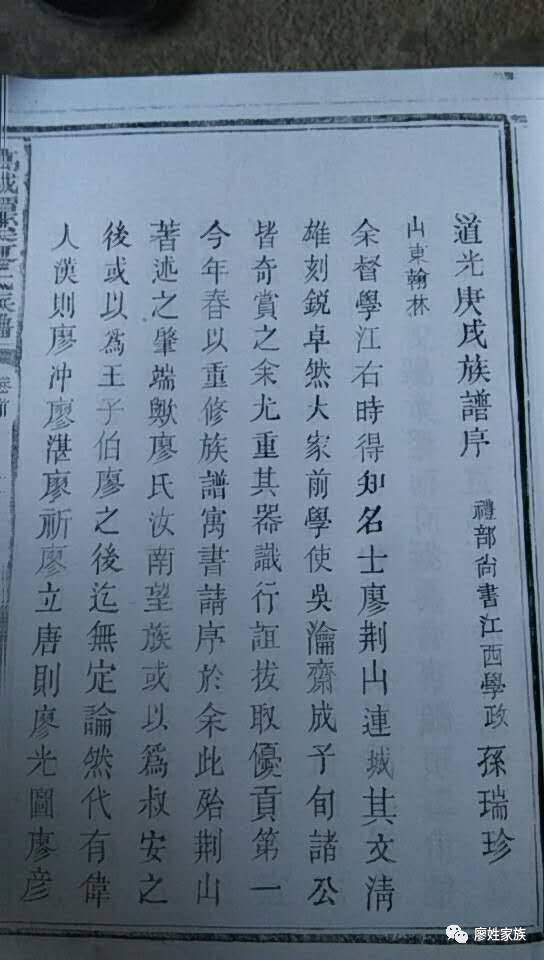 道光庚戌族譜序
禮部尚書江西學政 孫瑞珍
山東翰林
余督學江右時得知名士廖荆山連城其文清
雄刻銳卓然大家前學使吳瀹齋成子旬諸公
皆奇賞之余尤重其器識行誼拔取優貢第一
今年春以重修族譜寓書請序於余此殆荆山
著述之肇端歟廖氏汝南望族或以爲叔安之
後或以爲王子伯廖之後迄無定論然代有偉
人漢則廖冲廖湛廖祈廖立唐則廖光圖廖彦
廖姓家族